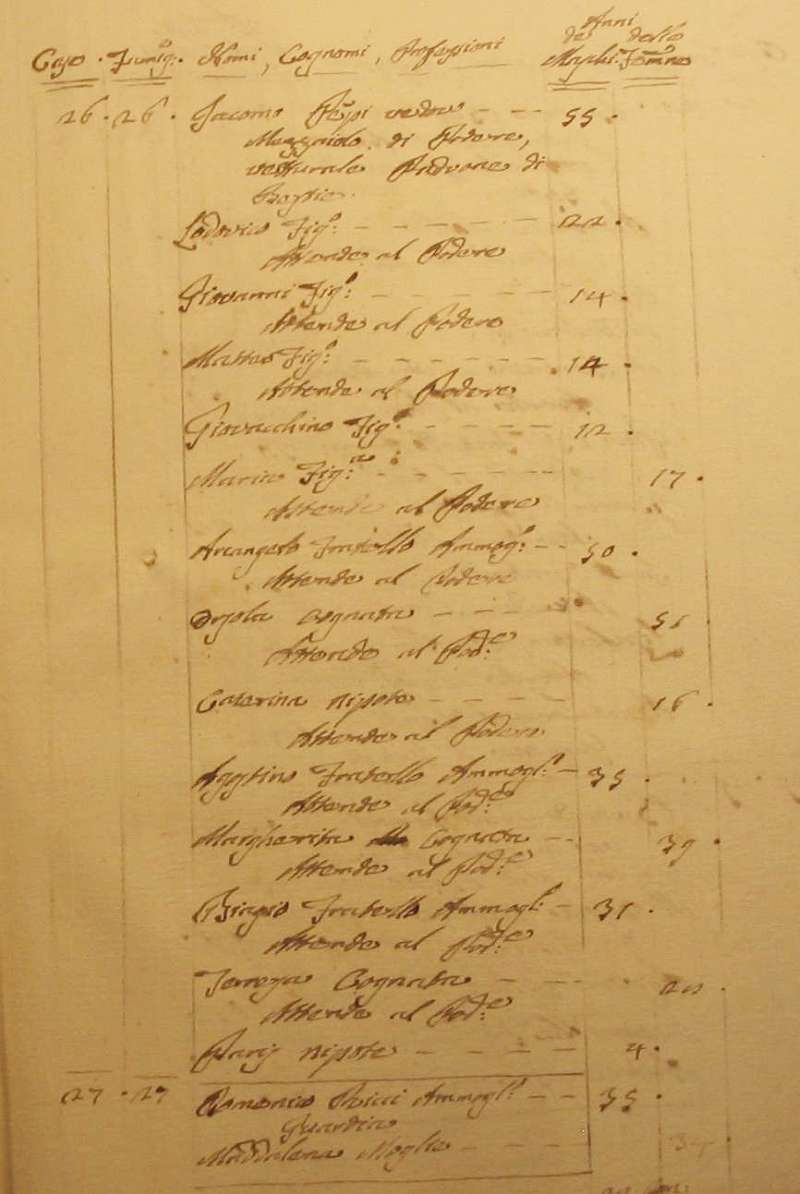 Anni
de dello
Case. Famig:e Nomi, Cognomi, Professioni Maschi. Femine
26. 26. Iacomo vedovo - - 55.
Mezzaiolo di Podere,
vetturale Padrone di
Bestie.
Lodovico Fig.o: - - - - - 22.
Attende al Podere
Giovanni Fig.o: - - - - - 14.
Attende al Podere
Matteo Fig.o: - - - - - - 14.
Attende al Podere
Giovacchino Fig.o: - - - - 12.
Maria Fig.a: - - - - - 17.
Attende al Podere
Arcangelo Fratello Ammog.o: - - 50.
Attende al Podere
Orsola Cognata - - - 51.
Attende al Pod:e
Caterina Nipote - - - - 16.
Attende al Podere
Agostino Fratello Ammogl:o - 35.
Attende al Pod:e
Margherita Cognata - - 39.
Attende al Pod:e
Biagio Fratello Ammogl:o - 31.
Attende al Pod:e
Terresa Cognata - - -
Attende al Pod:e
Paris Nipote - - - - 4.
27. 27 Domenico Ricci Ammogl:o - - 35.
Guardia
Maddalena Moglie - - - -